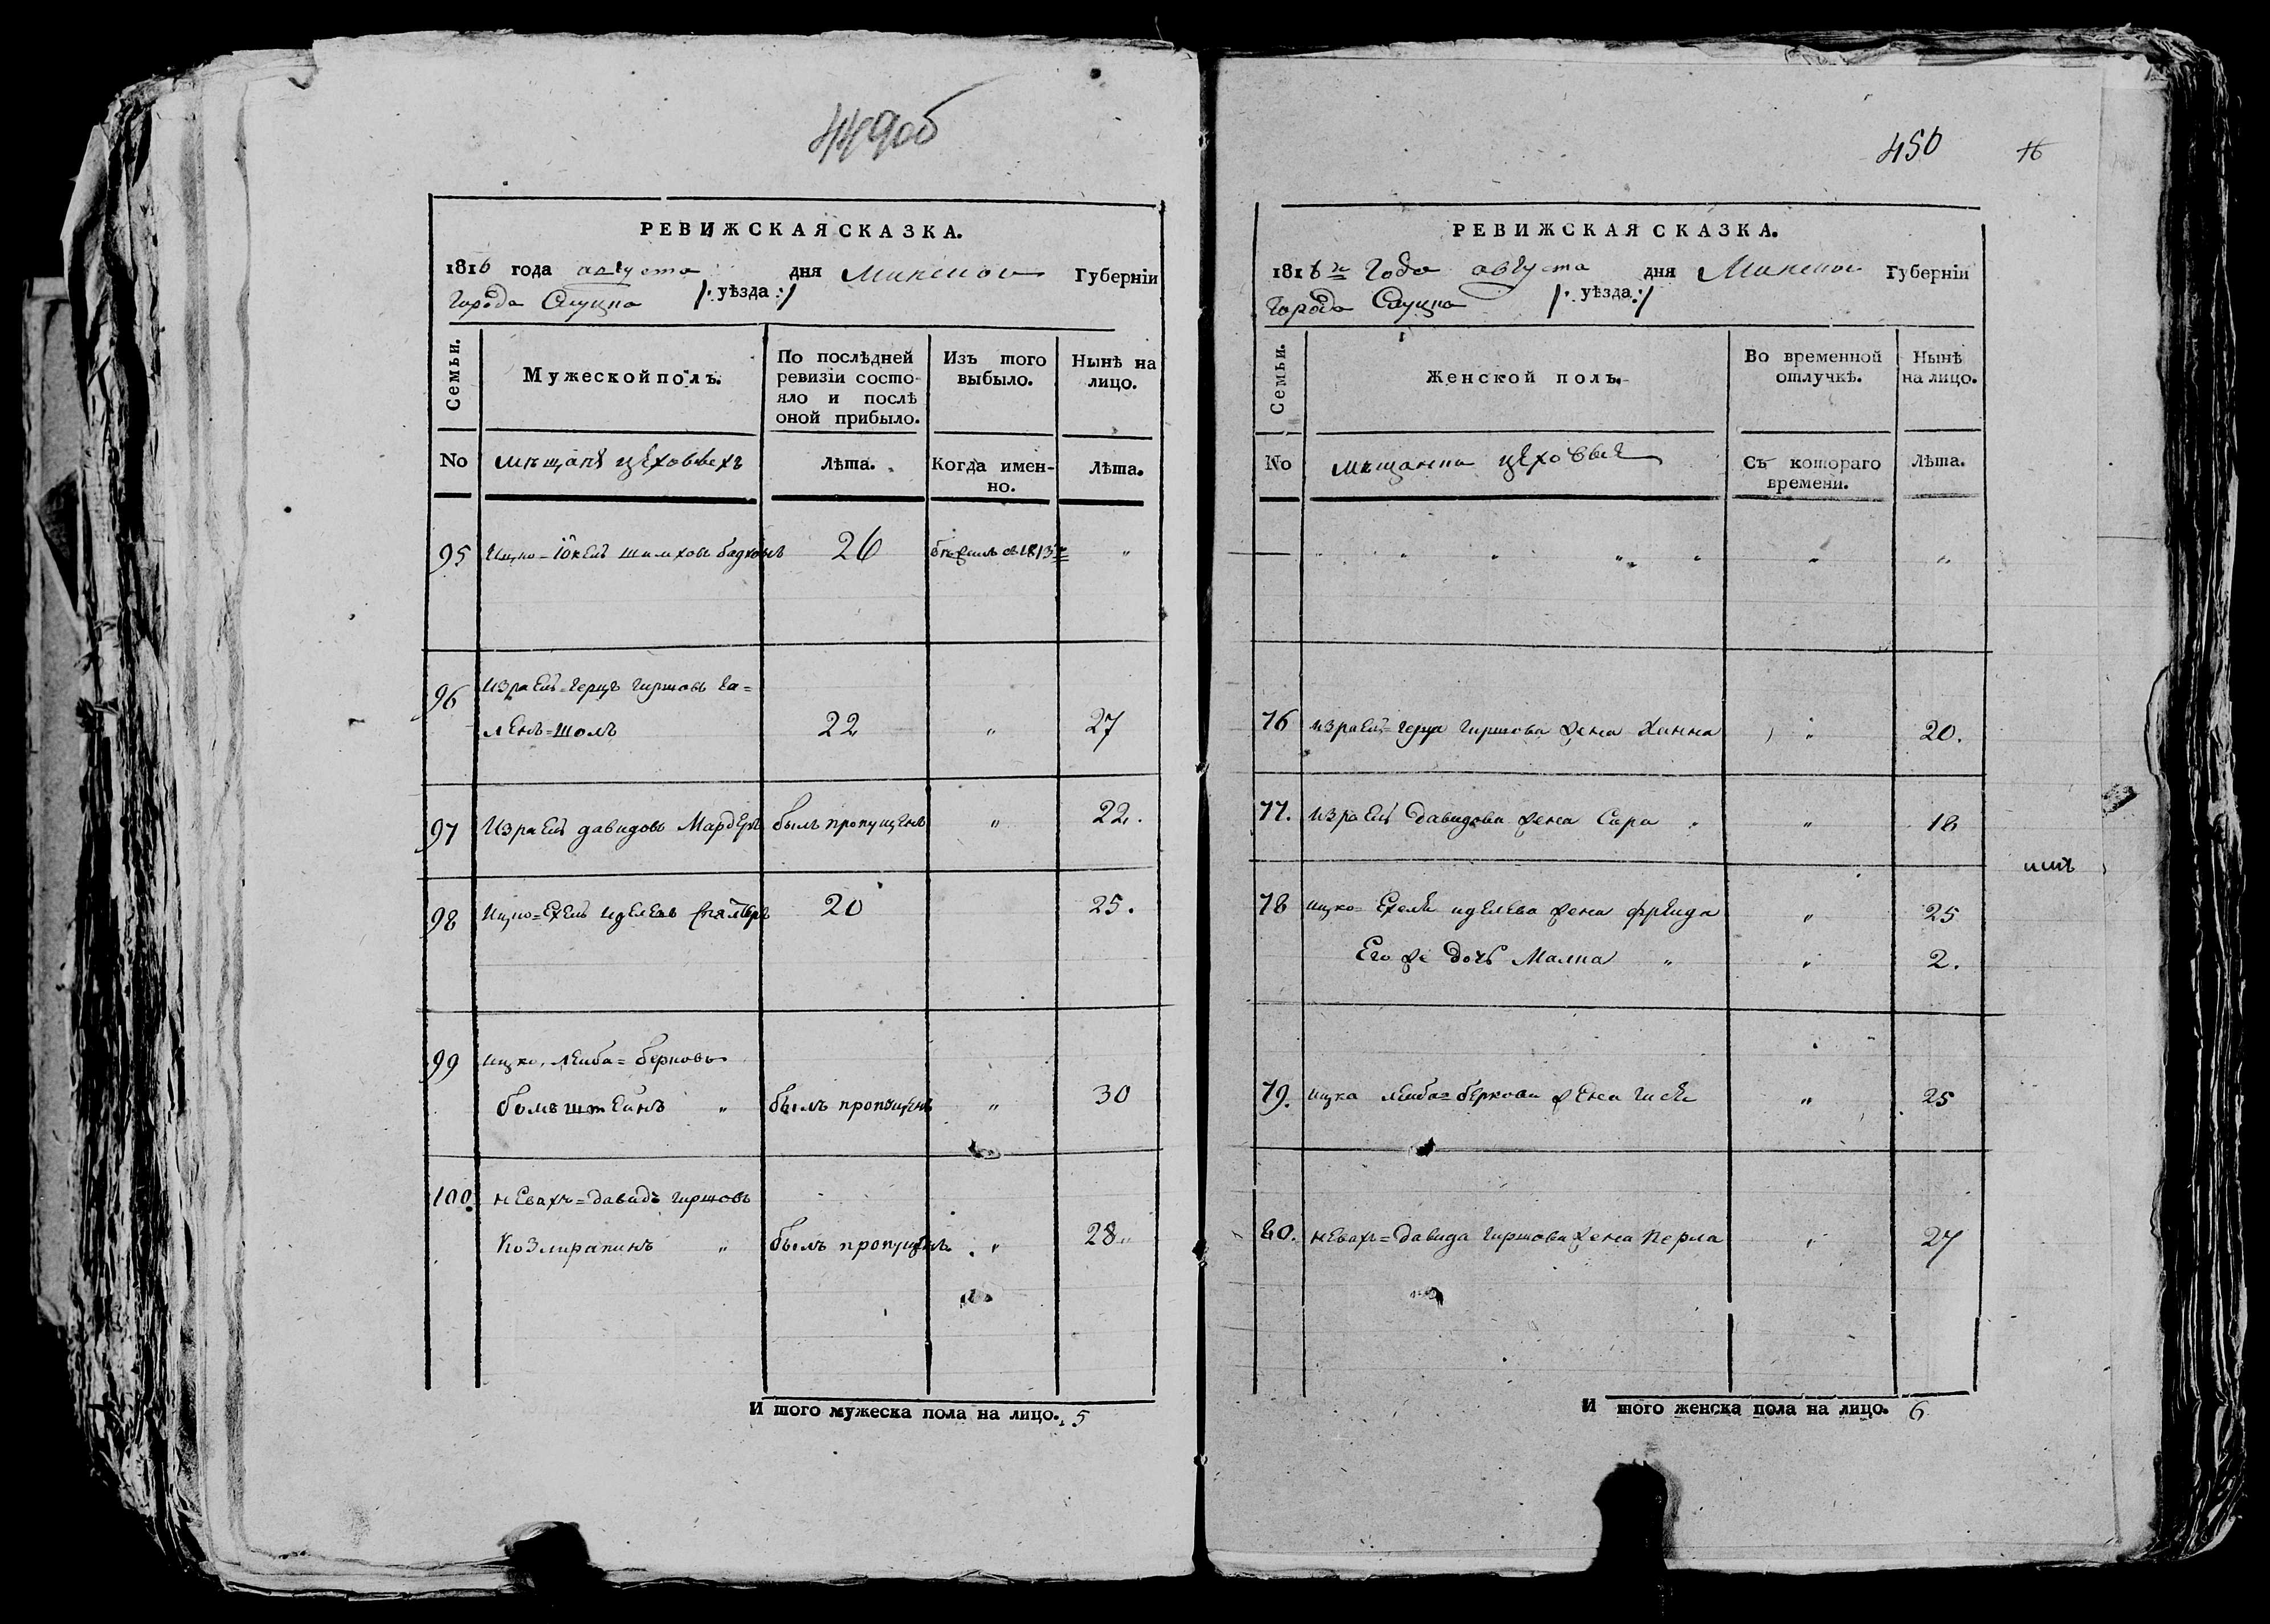 449об
РЕВИЖСКАЯ СКАЗКА.
1816 года августа дня Минской Губерніи
города Слуцка /: уѣзда :/
Семьи.
Мужеской полъ.
По послѣдней ревизіи состо-
яло и послѣ
оной прибыло.
Изъ того
выбыло.
Нынѣ на
лицо.
No
мѣщанъ цеховыхъ
лѣта.
Когда имен-
но.
лѣта.
95 Ицко-Іокель 26 1813 "
96 Израель=герцъ гиршовъ га=
ленъ=шолъ 22 " 27
97 Израель давидовъ Мардеръ былъ пропущенъ " 22.
98 Ицко=Ехель иделевъ 20 25.
99 ицко, леиба=берковъ
" былъ пропущенъ " 30
100. невахъ=давидъ гиршовъ
" былъ пропущенъ " 28
И того мужеска пола на лицо. 5
450
76
РЕВИЖСКАЯ СКАЗКА.
1816го Года августа дня Минской Губерніи
города Слуцка /: уѣзда :/
Семьи.
Женской полъ.
Во временной
отлучкѣ.
Нынѣ
на лицо.
No
мѣщанки цеховые
Съ котораго
времени.
Лѣта.
76 израель=герца гиршова жена Ханна " 20.
77. израеля давидова жена Сара " 18
78 ицко=Ехеля иделева жена фрейда " 25
Его же дочь Малка " " 2.
79. ицка леиба=беркова жена " 25
80. невахъ=давида гиршова жена перла " 27
И того женска пола на лицо. 6